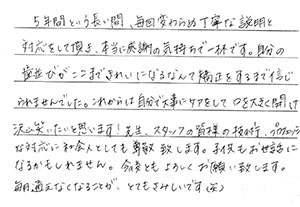 5年間という長い間、毎回変わらぬ丁寧な説明と
対応をして頂き、本当に感謝の気持ちで一杯です。自分の
歯並びがここまできれいになるなんて矯正をするまで信じ
られませんでした。これからは自分で大事にケアをして口を大きく開け
沢山笑いたいと思います!先生、スタッフの皆様の技術、プロフェッショナル
な対応に社会人としても尊敬致します。子供もお世話に
なるかもしれません。今後ともよろしくお願い致します。
毎月通えなくなることが、とてもさみしいです(笑)